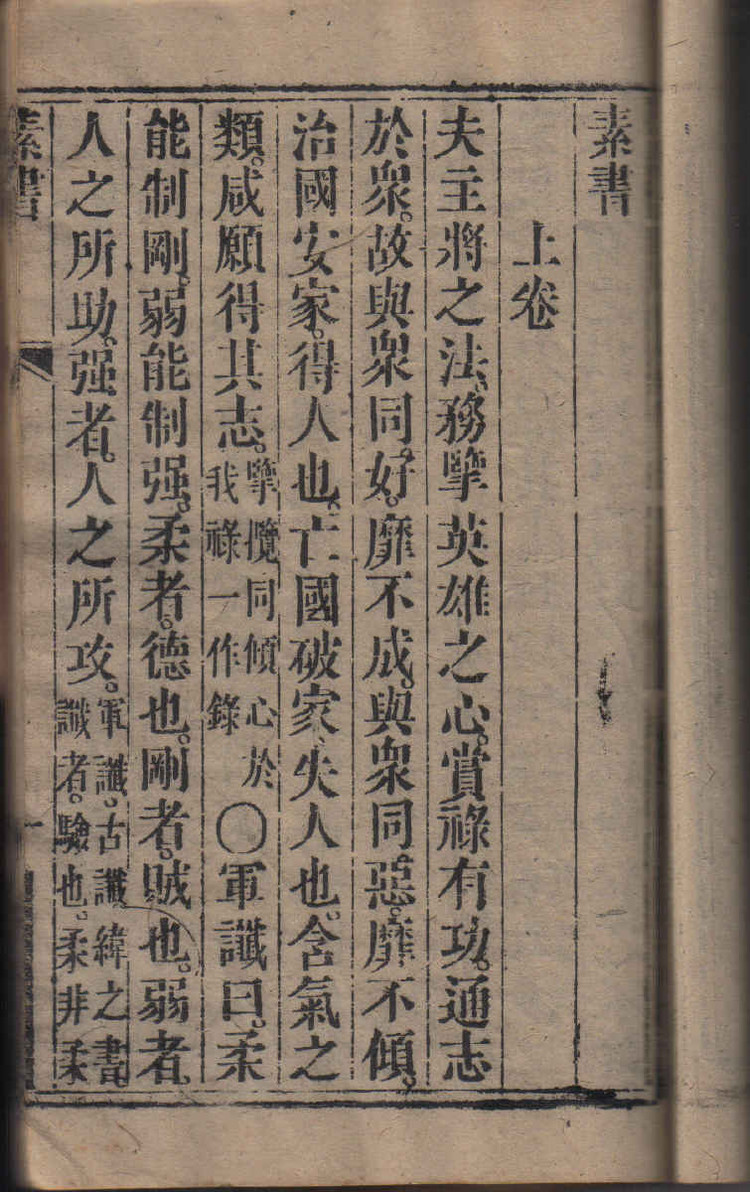 素書
上卷
夫主將之法。務擥英雄之心。賞祿有功。通志
於衆。故與衆同好。靡不成。與衆同惡。靡不傾。
治國安家。得人也。亡國破家、失人也。含氣之
類。咸願得其志。擥攬同傾心於我祿一作錄○軍讖曰。柔
能制剛。弱能制强。柔者。德也。剛者。賊也。弱者。
人之所助。强者。人之所攻。軍讖。古讖緯之書。讖者。驗也。柔非柔
素書
一